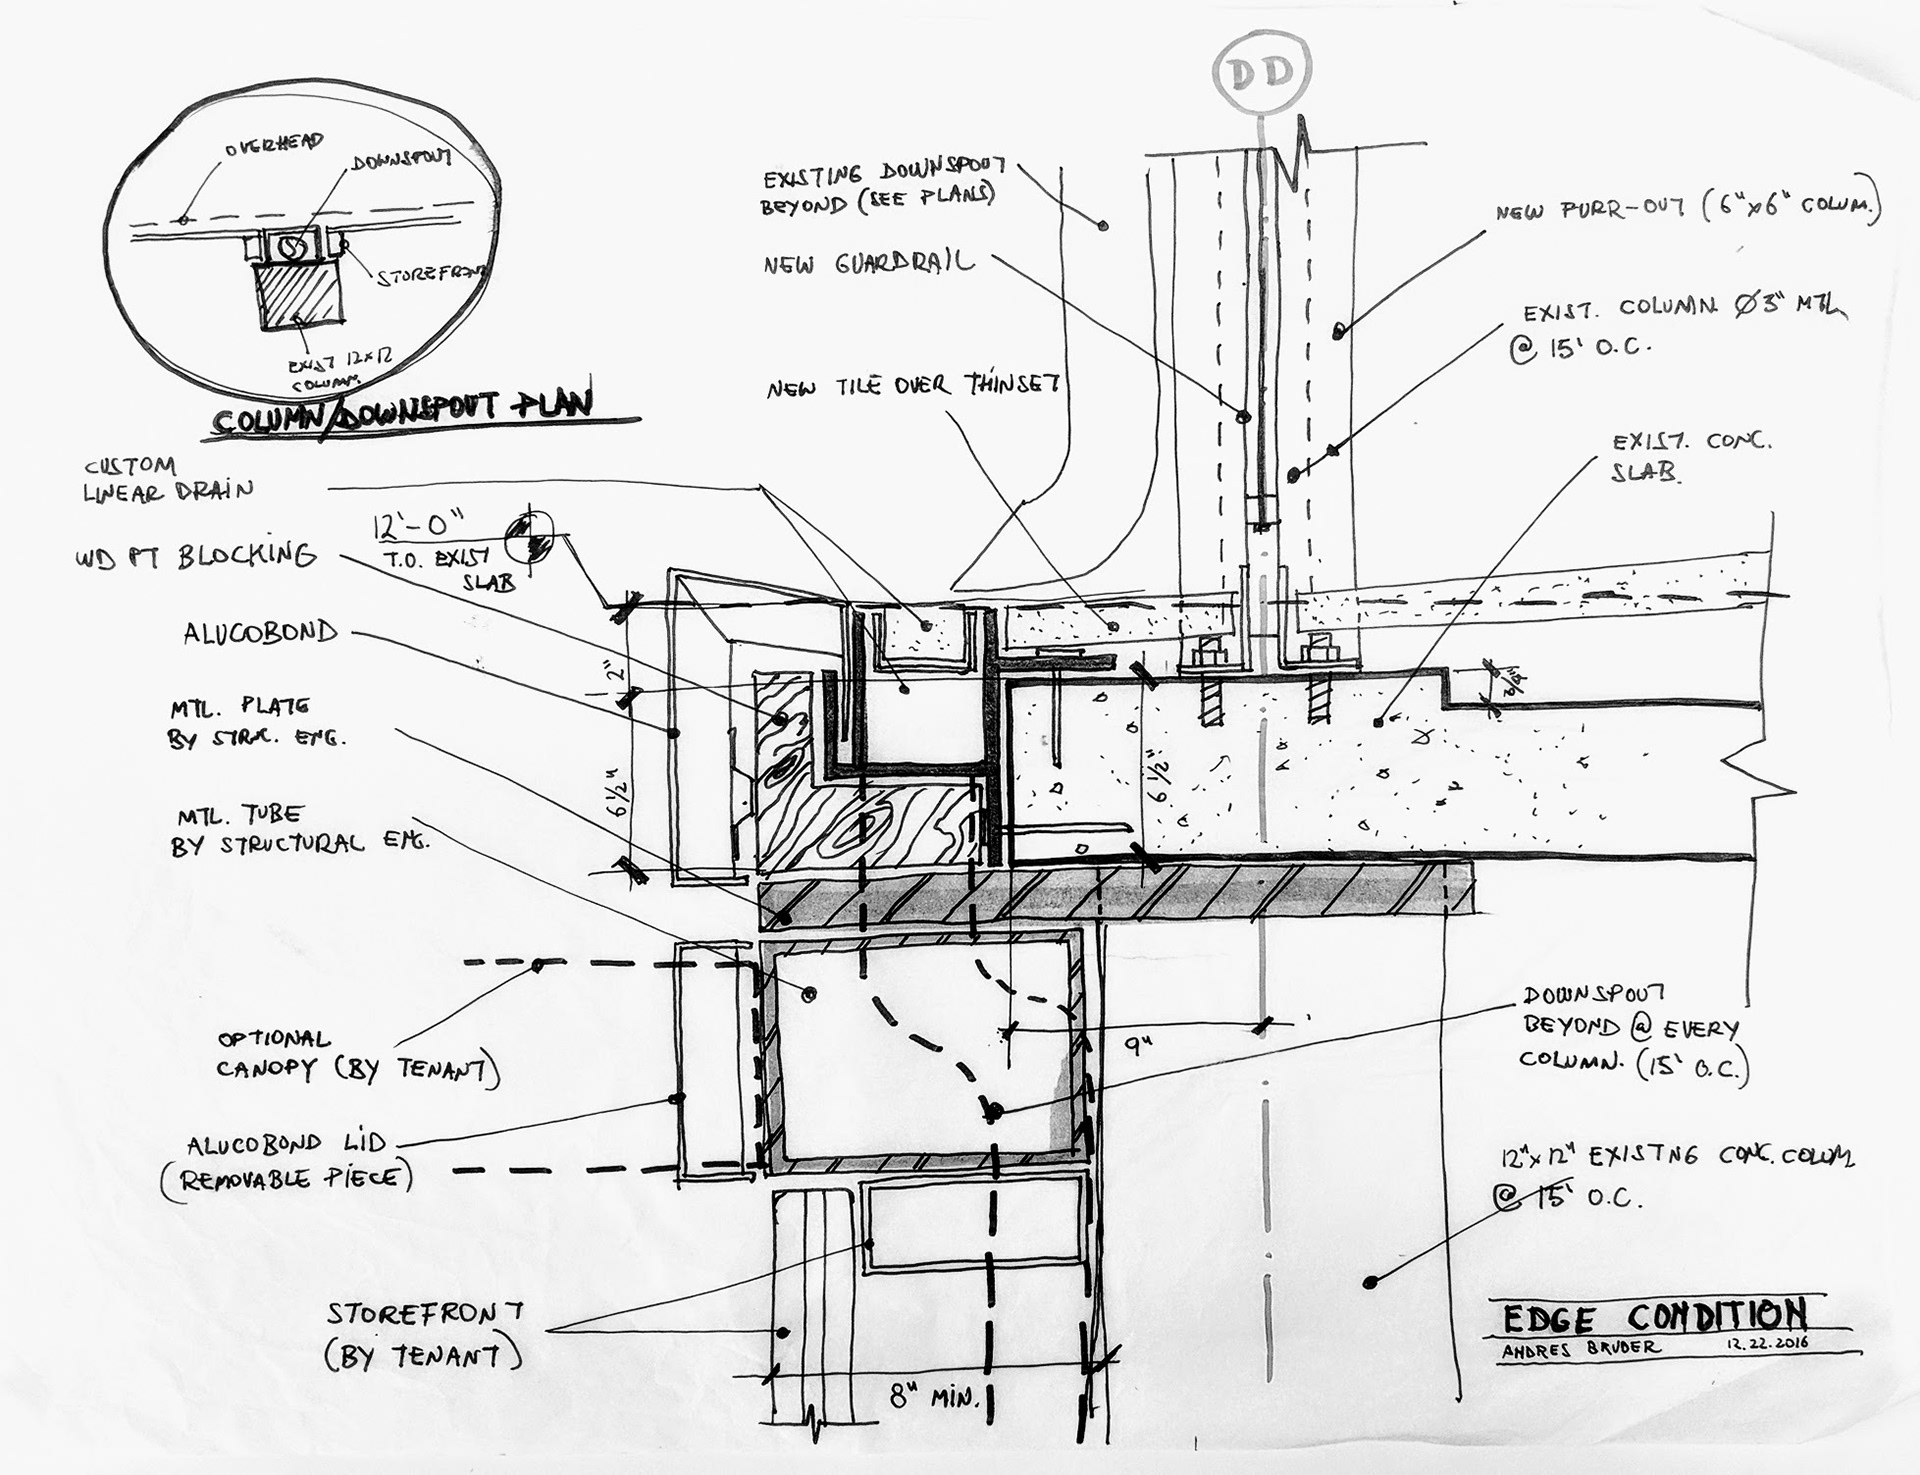 DD
OVERHEAD
DOWNSPOUT
STOREFRONT
EXIST 12x12
COLUMN.
COLUMN/DOWNSPOUT PLAN
EXISTING DOWNSPOUT
BEYOND (SEE PLANS)
NEW GUARDRAIL
NEW TILE OVER THINSET
NEW FURR-OUT (6"x6" COLUM.)
EXIST. COLUMN Ø3" MTL
@ 15' O.C.
EXIST. CONC.
SLAB.
CUSTOM
LINEAR DRAIN
12'-0"
T.O. EXIST
SLAB
WD PT BLOCKING
ALUCOBOND
MTL. PLATE
BY STRUC. ENG.
MTL. TUBE
BY STRUCTURAL ENG.
2"
6 1/2"
6 1/2"
9"
OPTIONAL
CANOPY (BY TENANT)
ALUCOBOND LID
(REMOVABLE PIECE)
STOREFRONT
(BY TENANT)
8" MIN.
DOWNSPOUT
BEYOND @ EVERY
COLUMN. (15' O.C.)
12"x12" EXISTNG CONC. COLUM
@ 15' O.C.
EDGE CONDITION
ANDRES BRUDER 12.22.2016